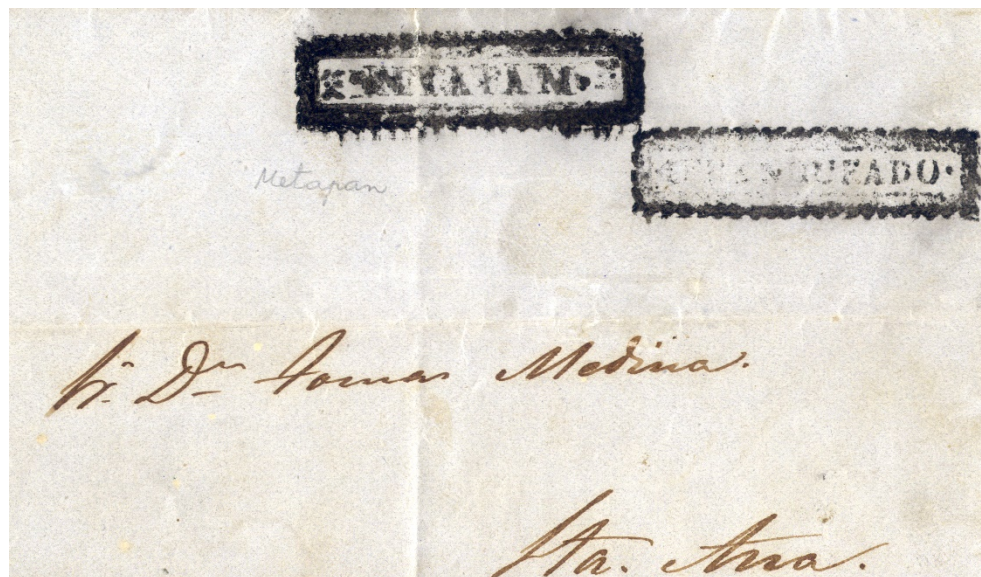 METAPAN
FRANQUEADO
Metapan
Sr. Dn Tomas Medina.
Sta. Ana.